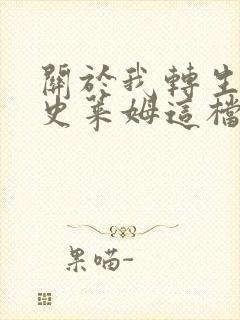 關於我轉生
史萊姆這檔
果喵-